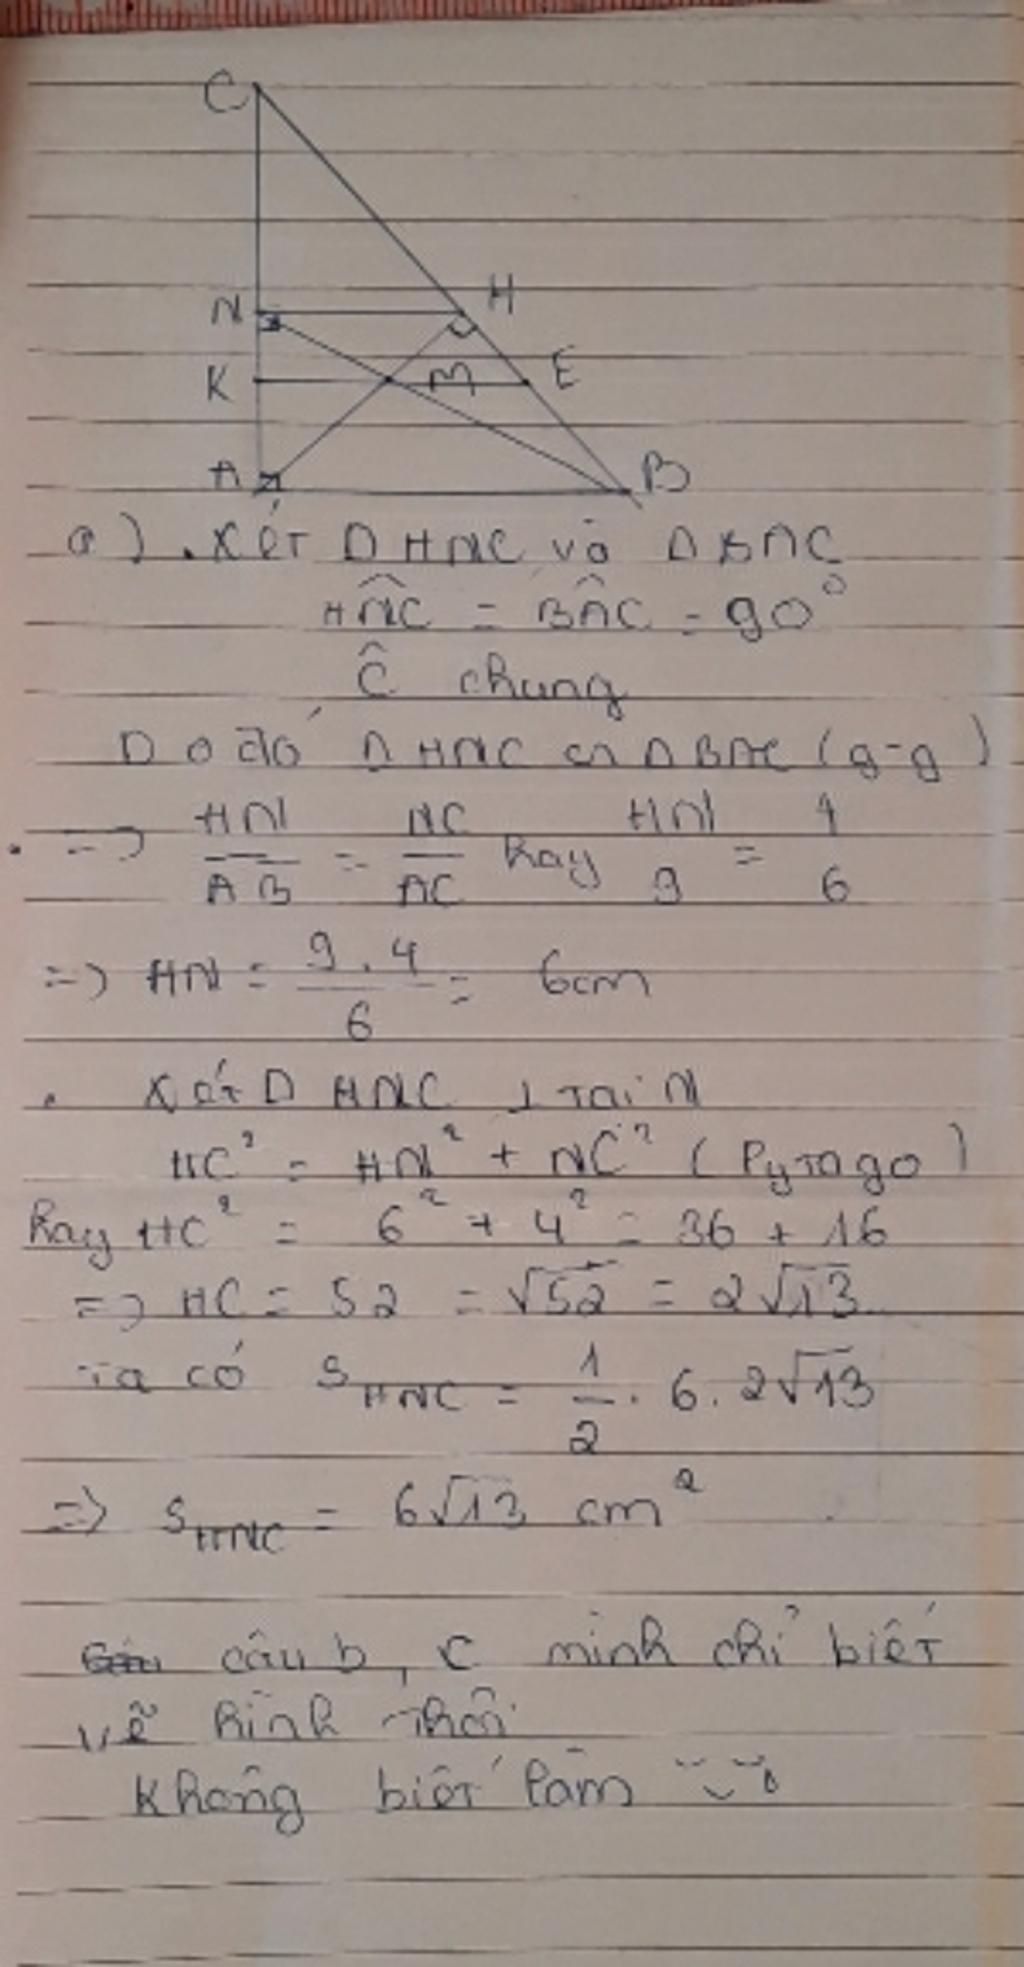 C
N
H
K
M
E
A
B
a). Xét Δ HNC và Δ BAC
HNC = BAC = 90°
Ĉ chung
Do đó Δ HNC ∽ Δ BAC (g-g)
=> HN/AB = NC/AC hay HN/9 = 4/6
=> HN = 9.4/6 = 6cm
. Xét Δ HNC ⊥ tại N
HC² = HN² + NC² (Pytago)
hay HC² = 6² + 4² = 36 + 16
=> HC = 52 = √52 = 2√13
Ta có S HNC = 1/2 . 6. 2√13
=> S HNC = 6√13 cm²
câu b, c mình chỉ biết
vẽ hình thôi
không biết làm